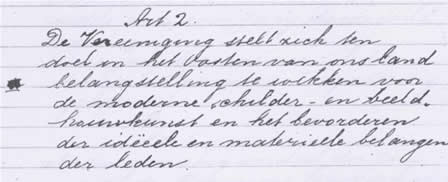 Art 2.
De Vereeniging stelt zich ten
doel in het Oosten van ons land
belangstelling te wekken voor
de moderne schilder- en beeld-
houwkunst en het bevorderen
der idëeele en materieele belangen
der leden.